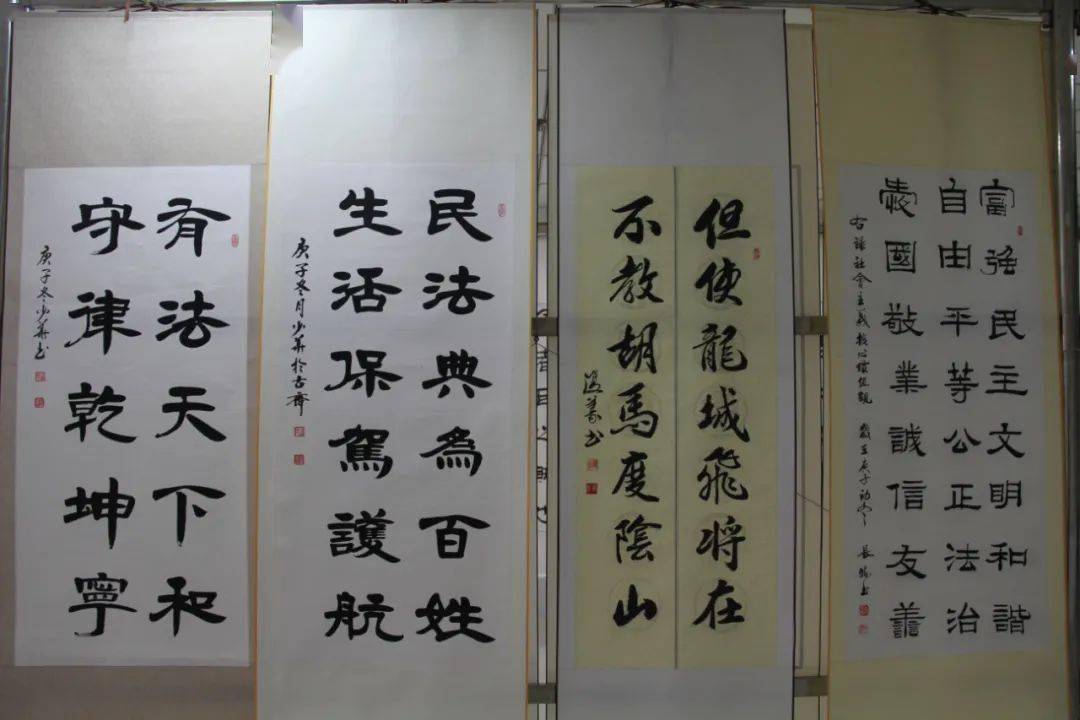 富强民主文明和諧
自由平等公正法治
愛國敬業誠信友善
右錄社會主義核心價值觀 歲在庚子初冬 書
但使龍城飛將在
不教胡馬度陰山
書
民法典為百姓
生活保駕護航
庚子冬月少華於古齊
有法天下和
守律乾坤寧
庚子冬少華書